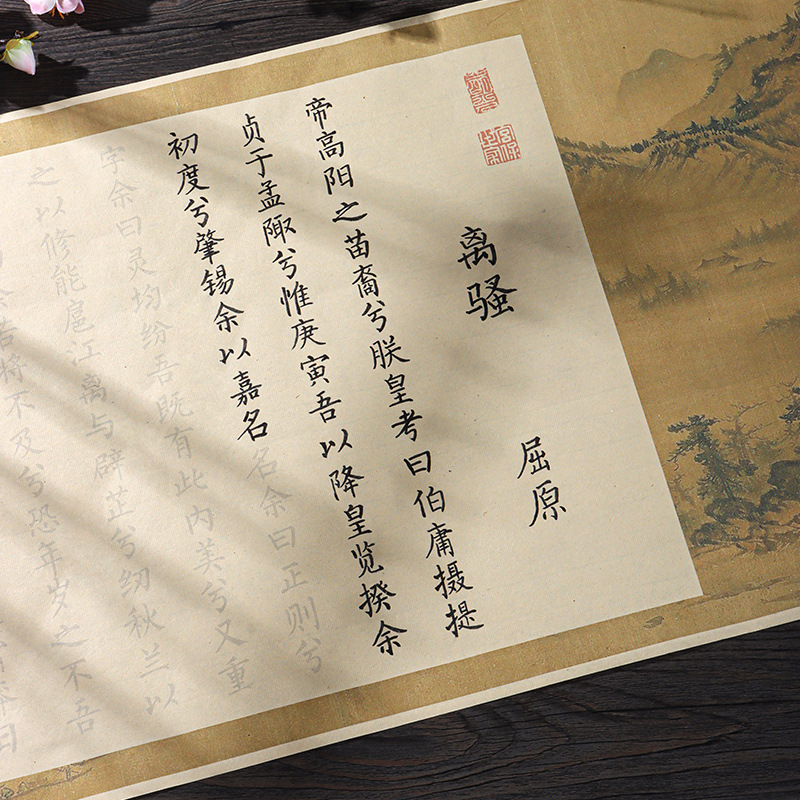 离骚
屈原
帝高阳之苗裔兮朕皇考曰伯庸摄提
贞于孟陬兮惟庚寅吾以降皇览揆余
初度兮肇锡余以嘉名名余曰正则兮
字余曰灵均纷吾既有此内美兮又重
之以修能扈江离与辟芷兮纫秋兰以
若将不及兮恐年岁之不吾